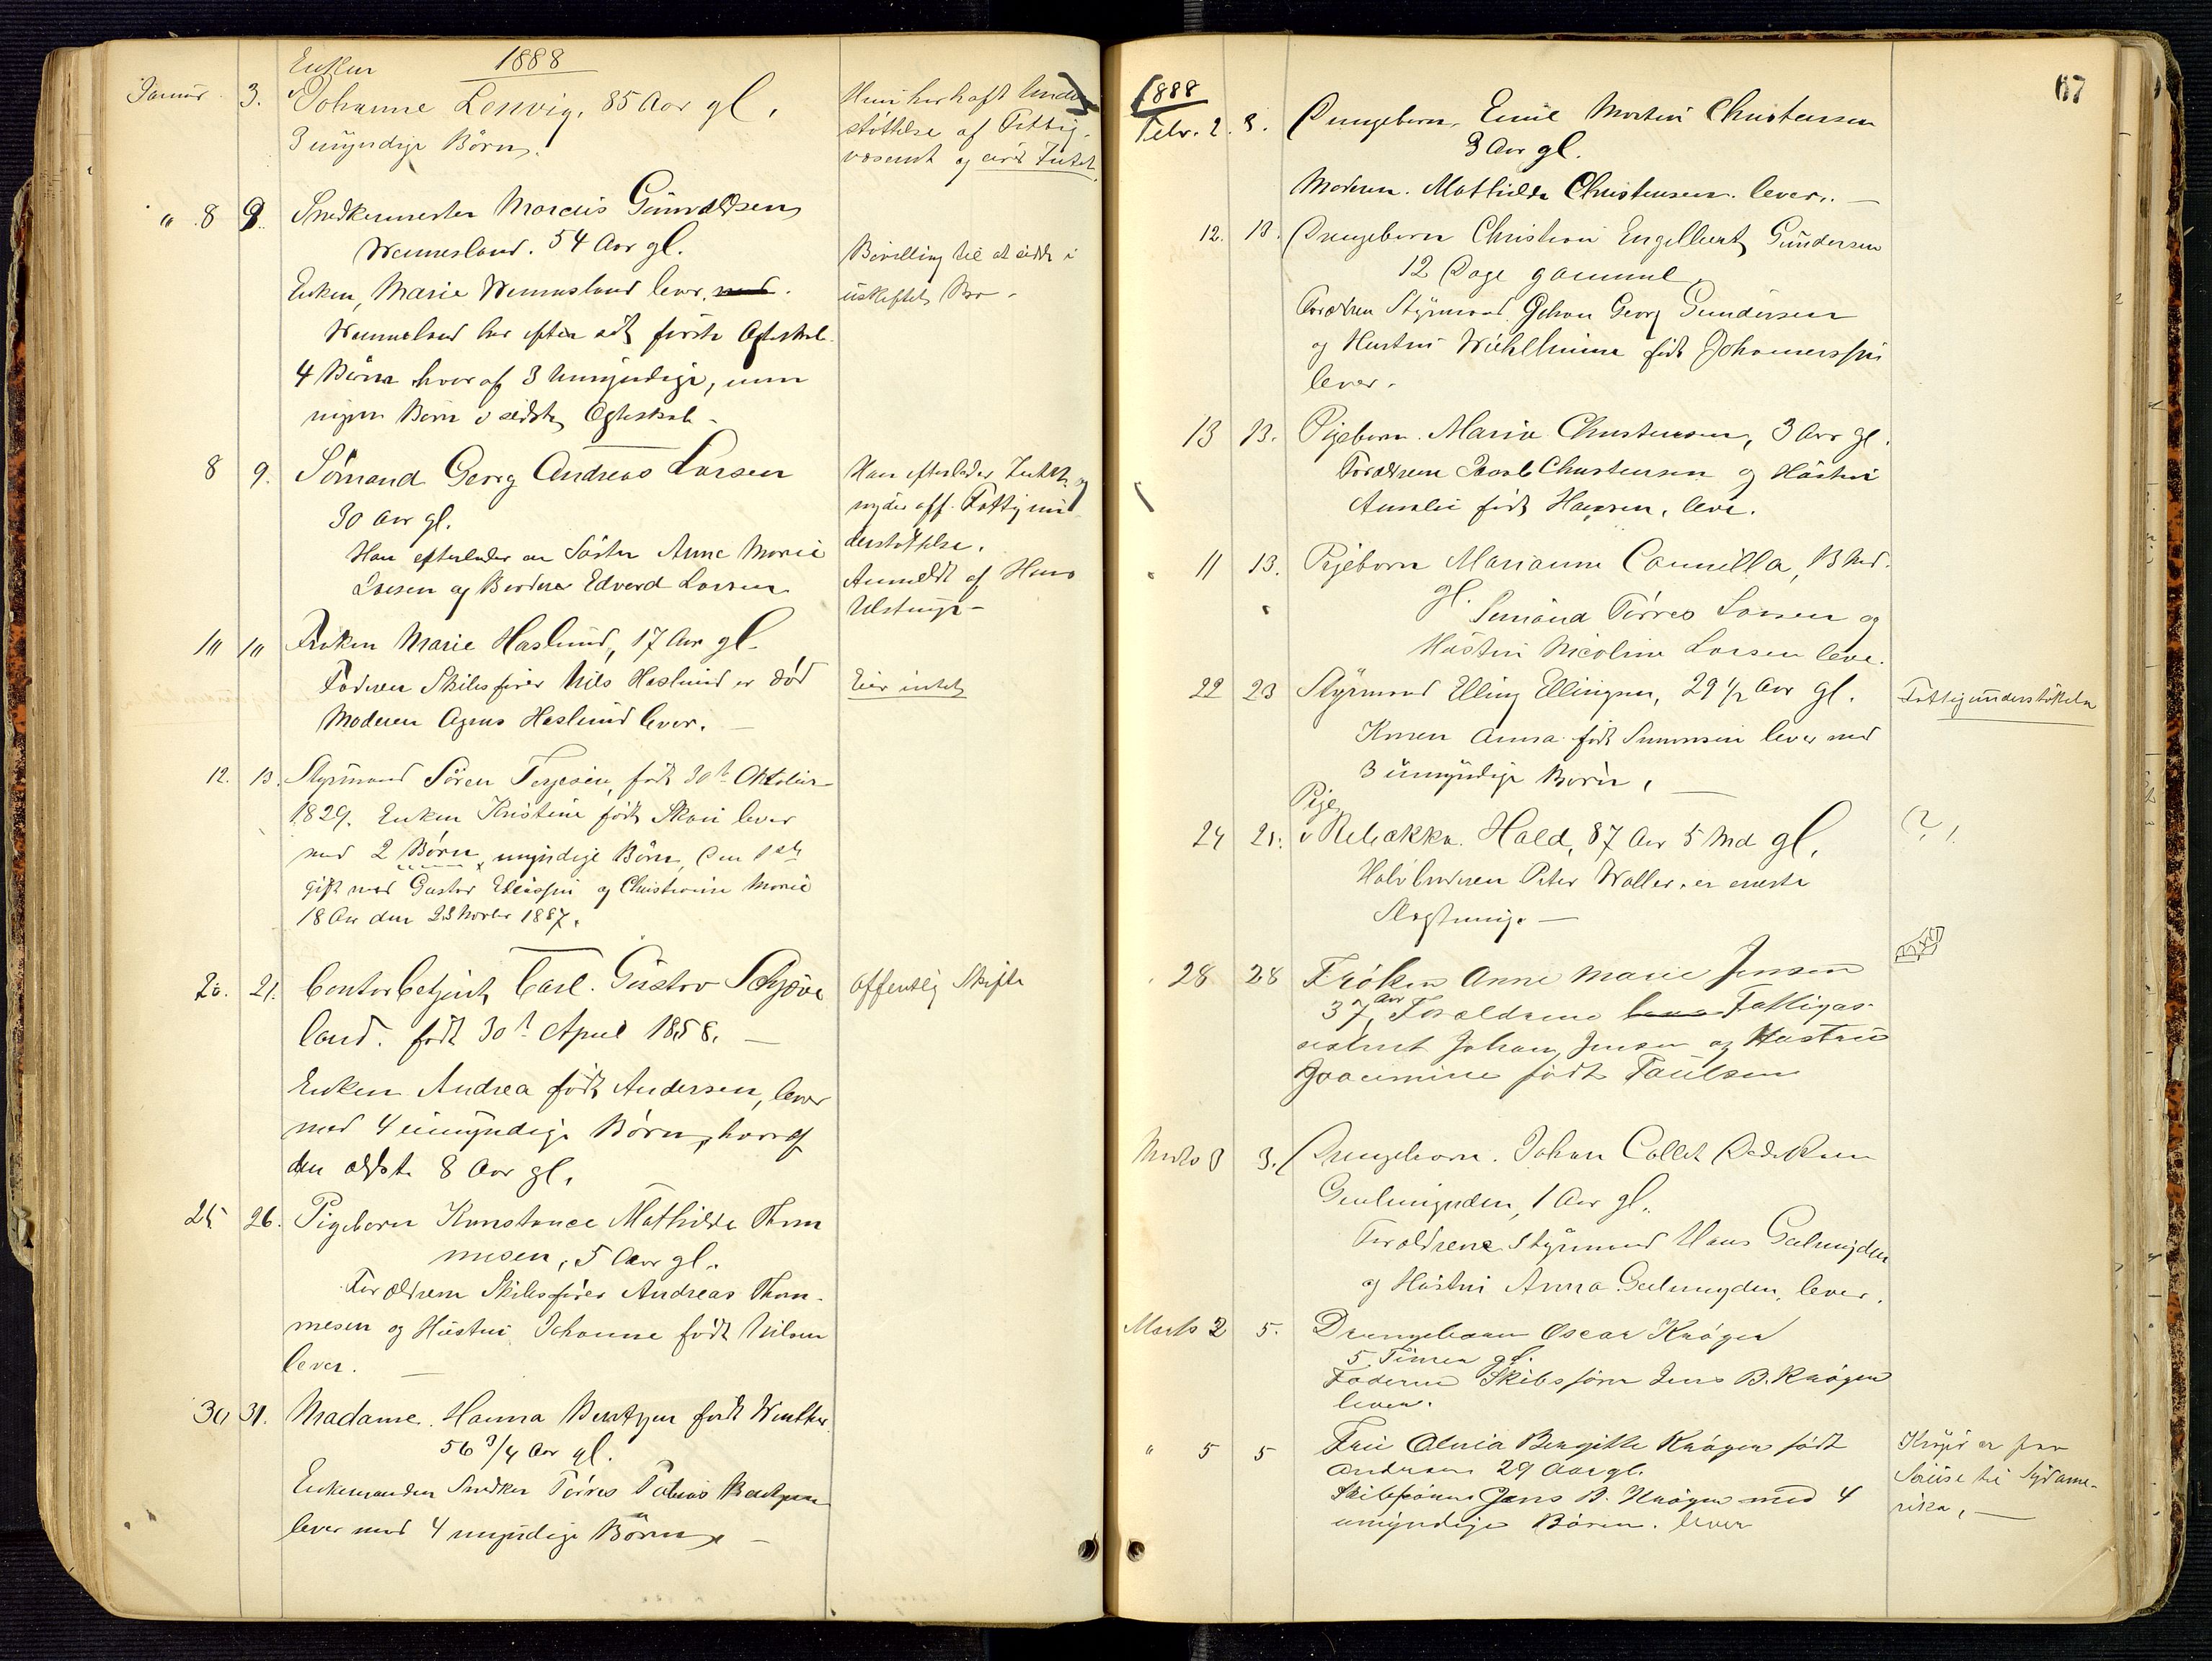 1888
Enken
Januar 3. Johanne Lenvig, 85 Aar gl,
3 myndige Børn.
Hun har haft Under
støttelse af Fattig-
væsenet og eier Intet.
" 8 9. Snedkermester Marcus Gunvaldsen
Wennesland. 54 Aar gl.
Enken, Marie Wennesland lever.
Wennesland har efter sit første Ægteskab
4 Børn hvoraf 3 Umyndige, men
ingen Børn i sidste Ægteskab -
Bevilling til at sidde i
uskiftet Bo -
8 9. Sømand Georg Andreas Larsen
30 Aar gl.
Han efterlader en Søster Anne Marie
Larsen og Broder Edvard Larsen
Han efterlader Intet og
nyder off. Fattigun
derstøttelse.
Anmeldt af Hans
Ulstrup -
10 10 Frøken Marie Haslund, 17 Aar gl.
Faderen Skibsfører Nils Haslund er død
Moderen Agnes Haslund lever. -
Eier intet
12. 13. Styrmand Søren Terjesen, født 30te Oktober
1829. Enken Kristine født lever
med 2 Børn, myndige Børn, Den
gift med Gustav og Christine Marie
18 Aar den 23 Novbr 1887.
20. 21. Contorbetjent Carl. Gustav Schjøve
land. født 30te April 1858. -
Enken Andrea født Andersen, lever
med 4 umyndige Børn, hvoraf
den ældste 8 Aar gl.
Offentlig Skifte
25 26. Pigebarn Konstance Mathilde Thom
mesen, 5 Aar gl.
Forældrene Skibsfører Andreas Thom-
mesen og Hustru Johanne født Nilsen
lever. -
30 31. Madame. Hanna Bentzen født Winther
56 3/4 Aar gl.
Enkemanden Snedker Tørres Tobias Bentzen
lever med 4 myndige Børn -
67
1888
Febr. 2. 3. Drengebarn, Emil Martin Christensen
3 Aar gl.
Moderen. Mathilde Christensen. lever. -
12. 13. Drengebarn Christian Engelbert Gundersen
12 Dage gammel
Forældren Styrmand Johan Georg Gundersen
og Hustru Wilhelmine født Johannessen
lever.
13 13. Pigebarn. Maria Christensen, 3 Aar gl.
Forældrene Jacob Christensen og Hustru
Amalie født Hansen, leve.
11 13. Pigebarn Marianne Camilla, 13 Md.
gl. Sømand Tørres Larsen og
Hustru Nicoline Larsen leve.
22 23 Styrmand Elling Ellingsen, 29 1/2 Aar gl.
Konen Anna født Simonsen lever med
3 umyndige Børn, -
Fattigunderstøttelse
Pige
24 25. Rebækka. Hald, 87 Aar 5 Md gl,
Halvbroderen Peter Waller, er eneste
Slægtning. -
?
28 28 Frøken Anne Marie Jensen
37 Aar Forældrene Fattigas-
sistent Johan Jensen og Hustru
Joacimine født Paulsen
Marts 3 3. Drengebarn. Johan Collet Dedekam
Geelmuyden, 1 Aar gl.
Forældrene Styrmand Hans Geelmuyden
og Hustru Anna Geelmuyden, lever.
Marts 2 5. Drengebarn Oscar Krøger
5 Timer gl.
Faderen Skibsfører Jens B. Krøger
lever.
" 5 5 Fru Olivia Bergitte Krøger født
Andersen 29 Aar gl.
Skibsfører Jens B. Krøger med 4
umyndige Børn. lever
Krøger er paa
Seiise til Sydame-
rika, -